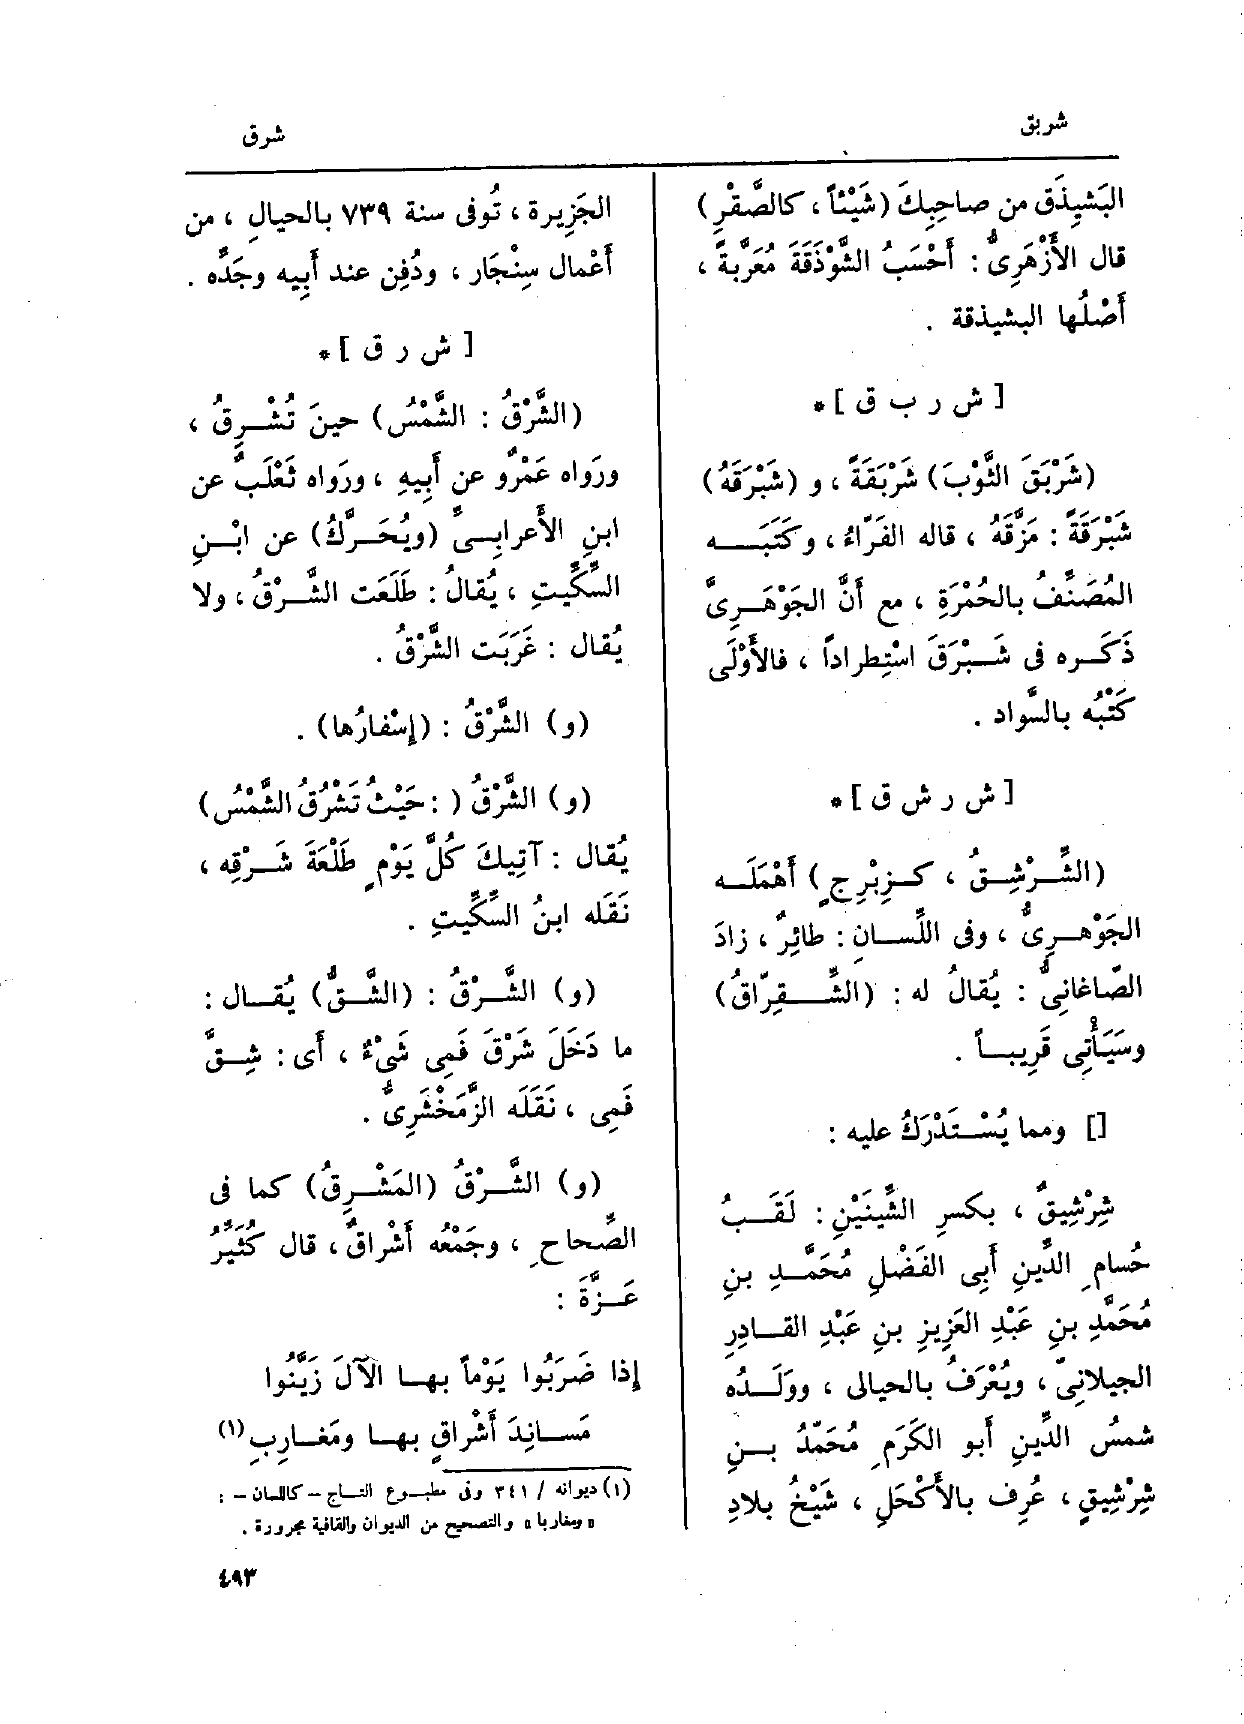 شربق
شرق
البَشِيذَق من صاحِبِكَ (شَيْئاً ، كالصَّقْرِ)
قال الأَزْهَرِىُّ : أَحْسَبُ الشَّوْذَقَةَ مُعَرَّبةً ،
أَصْلُها البشيذقة .
[ ش ر ب ق ] *
(شَرْبَقَ الثَّوْبَ) شَرْبَقَةً ، و (شَبْرَقَهُ)
شَبْرَقَةً : مَزَّقَهُ ، قاله الفَرّاءُ ، وكَتَبَـــه
المُصَنِّفُ بالحُمْرَةِ ، مع أَنَّ الجَوْهَـرِىَّ
ذَكَـره فى شَـبْرَقَ اسْتِطراداً ، فالأَوْلَى
كَتْبُه بالسَّواد .
[ ش ر ش ق ] *
(الشِّـرْشِـقُ ، كـزِبْرِجٍ) أَهْمَلَـه
الجَوْهَـرِىُّ ، وفى اللِّسـان : طائِرٌ ، زادَ
الصّاغانِىُّ : يُقالُ له : (الشِّـــقِرّاقُ)
وسَيَأْتِى قَرِيبـاً .
[] ومما يُسْـتَدْرَكُ عليه :
شِرْشِيقٌ ، بكسرِ الشِّينَيْنِ : لَقَـبُ
حُسامِ الدِّينِ أَبِى الفَضْلِ مُحَمَّـدِ بنِ
مُحَمَّدِ بنِ عَبْدِ العَزِيزِ بنِ عَبْدِ القـادِرِ
الجيلانىّ ، ويُعْرَفُ بالحيالى ، ووَلَـدُه
شمسُ الدِّينِ أبو الكَرَمِ مُحَمّدُ بـنِ
شِرْشِيقٍ ، عُرِف بالأَكْحَلِ ، شَيْخُ بلادِ
الجَزِيرة ، تُوفى سنة ٧٣٩ بالحيالِ ، من
أَعْمال سِنْجَار ، ودُفِن عند أَبِيه وجَدِّه .
[ ش ر ق ] *
(الشَّرْقُ : الشَّمْسُ) حينَ تُشْـرِقُ ،
ورَواه عَمْرٌو عن أَبِيهِ ، ورَواه ثَعْلَبٌ عن
ابنِ الأَعرابِـىِّ (ويُحَـرَّكُ) عن ابْـنِ
السِّكِّيتِ ، يُقالُ : طَلَعَت الشَّـرْقُ ، ولا
يُقال : غَرَبَت الشَّرْقُ .
(و) الشَّرْقُ : (إِسْفارُها) .
(و) الشَّرْقُ ( : حَيْثُ تَشْرُقُ الشَّمْسُ)
يُقال : آتِيكَ كُلَّ يَوْمٍ طَلْعَةَ شَـرْقِه ،
نَقَله ابنُ السِّكِّيتِ .
(و) الشَّـرْقُ : (الشَّـقُّ) يُقـال :
ما دَخَلَ شَرْقَ فَمِى شَىْءٌ ، أَى : شِـقَّ
فَمِى ، نَقَلَه الزَّمَخْشَرِىُّ .
(و) الشَّـرْقُ (المَشْـرِقُ) كما فى
الصِّحاحِ ، وجَمْعُه أَشْراقٌ ، قال كُثَيِّرُ
عَـزَّةَ :
إِذا ضَرَبُوا يَوْماً بهـا الآلَ زَيَّنُوا
مَسـانِدَ أَشْراقٍ بهـا ومَغـارِبِ(١)
(١) ديوانه / ٣٤١ وفى مطبـوع التـاج - كاللسان - :
« ومغاربا » والتصحيح من الديوان والقافية مجرورة .
٤٩٣